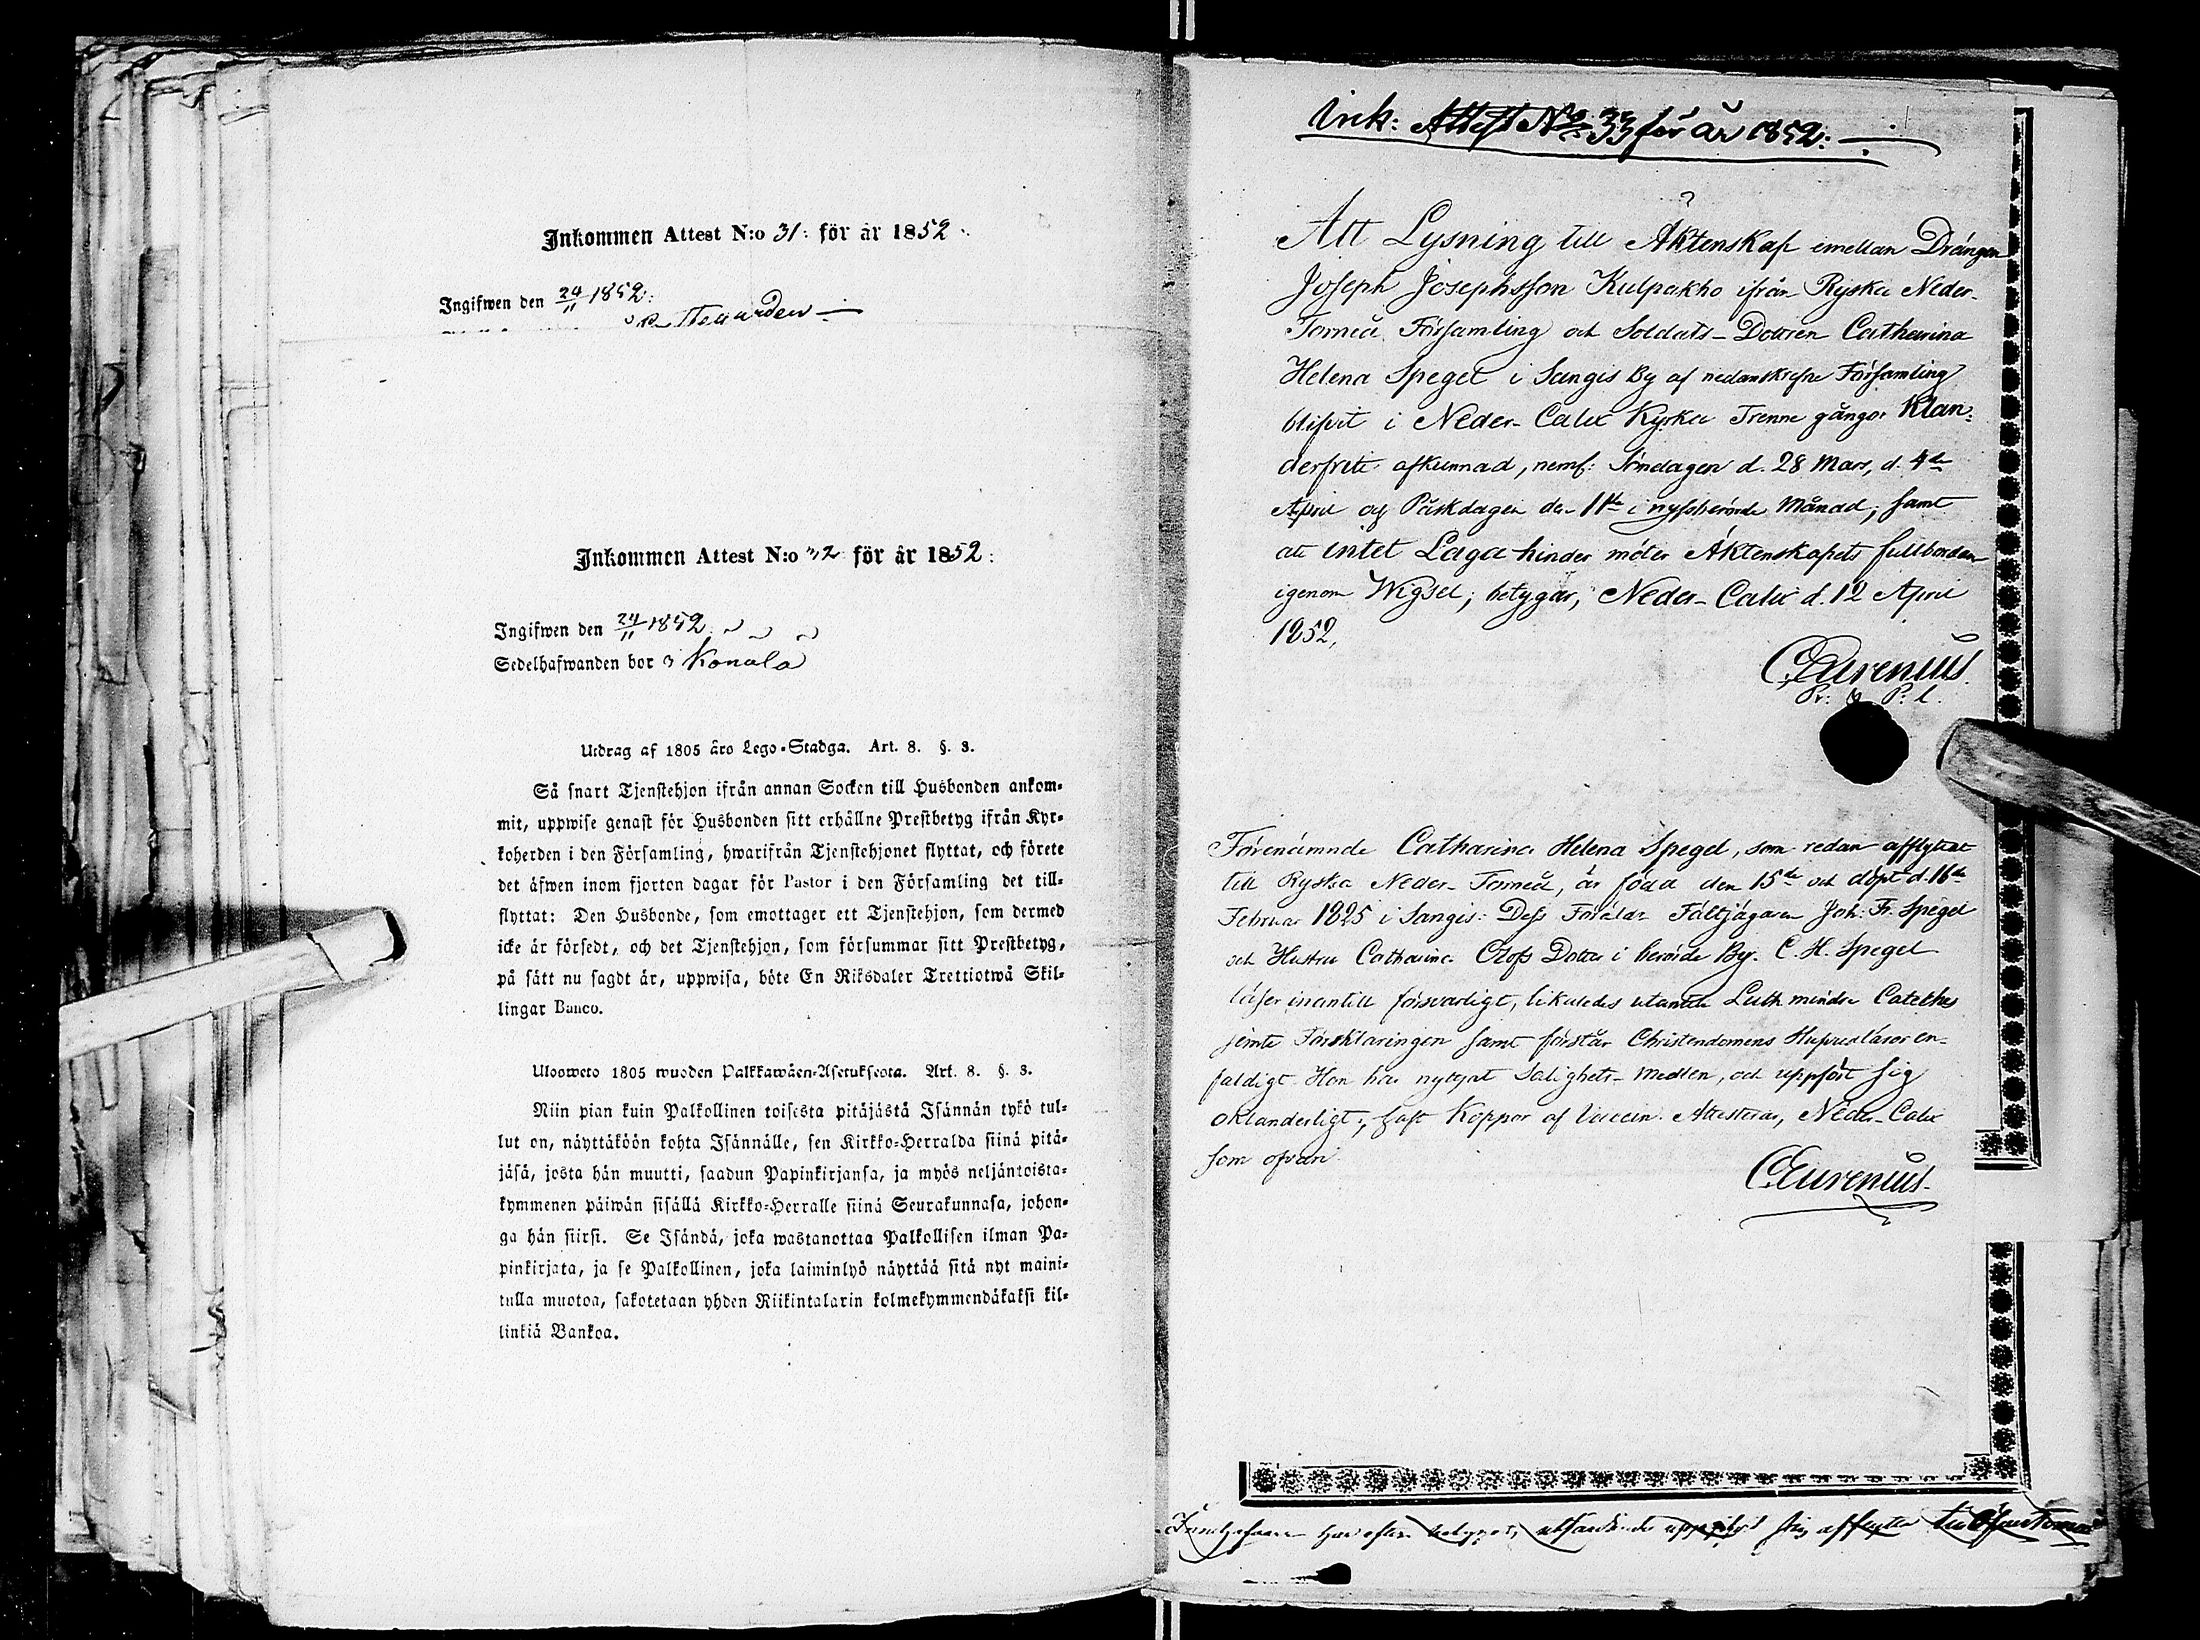 Inkommen Attest N:o 31: för år 1852.
Ingifwen den 24/11 1852.
Inkommen Attest N:o 32 för år 1852:
Ingifwen den 24/11 1852.
Sedelhafwanden bor i Konala
Utdrag af 1805 åro Lego-Stadga. Art. 8. §. 3.
Så snart Tjenstehjon ifrån annan Socken till Husbonden ankom-
mit, uppwise genast för Husbonden sitt erhållne Prestbetyg ifrån Kyr-
koherden i den Församling, hwarifrån Tjenstehjonet flyttat, och förete
det äfwen inom fjorton dagar för Pastor i den Församling det till-
flyttat: Den Husbonde, som emottager ett Tjenstehjon, som dermed
icke är försedt, och det Tjenstehjon, som försummar sitt Prestbetyg,
på sätt nu sagdt är, uppwisa, böte En Riksdaler Trettiotwå Skil-
lingar Banco.
Uloosweto 1805 wuoden Palkkawäen-Asetuksesta. Art. 8. §. 3.
Niin pian kuin Palkollinen toisesta pitäjästä Isännän tykö tul-
lut on, näyttäköön kohta Isännälle, sen Kirkko-Herralda siinä pitä-
jäsä, josta hän muutti, saadun Papinkirjansa, ja myös neljäntoista-
kymmenen päiwän sisällä Kirkko-Herralle siinä Seurakunnasa, johon-
ga hän siirsi. Se Isändä, joka wastanottaa Palkollisen ilman Pa-
pinkirjata, ja se Palkollinen, joka laiminlyö näyttää sitä nyt maini-
tulla muotoa, sakotetaan yhden Riikintalarin kolmekymmendäkaksi kil-
linkiä Bankoa.
Ink: Attest No 33 för år 1852:
Att Lysning till Äktenskap emellan Drängen
Joseph Josephsson Kulpakko ifrån Ryska Neder-
Torneå Församling och Soldats-Dottren Catharina
Helena Spegel i Sangis By af nedanskrefne Församling
blifvit i Neder-Calix Kyrka Trenne gångor Klan-
derfritt afkunnad, neml: Söndagen d. 28 Mars, d. 4de
April og Påskdagen den 11te i nyssberörde Månad, samt
att intet Laga hinder möter Äktenskapets fullbordan
igenom Wigsel, betygar, Neder-Calix d. 12 April
1852,
C. Eurenius.
Pr: P: l.
Förenämnde Catharina Helena Spegel, som redan afflyttat
till Ryska Neder-Torneå, är född den 15de och döpt d. 16de
Februar 1825 i Sangis: Dess Föräldr Fältjägaren Joh: Fr. Spegel
och Hustru Catharina Olofs Dotter i berörde By. C. H. Spegel
läser innantill försvarligt, likaledes utantill Luth. mindre Cateches
jemte Förklaringen samt förstår Christendomens Hufvudläror en-
faldigt. Hon har nyttjat Salighets-Medlen, och uppfört sig
oklanderligt, haft Koppor af Vaccin. Attesteras, Neder-Calix
som ofvan
C. Eurenius.